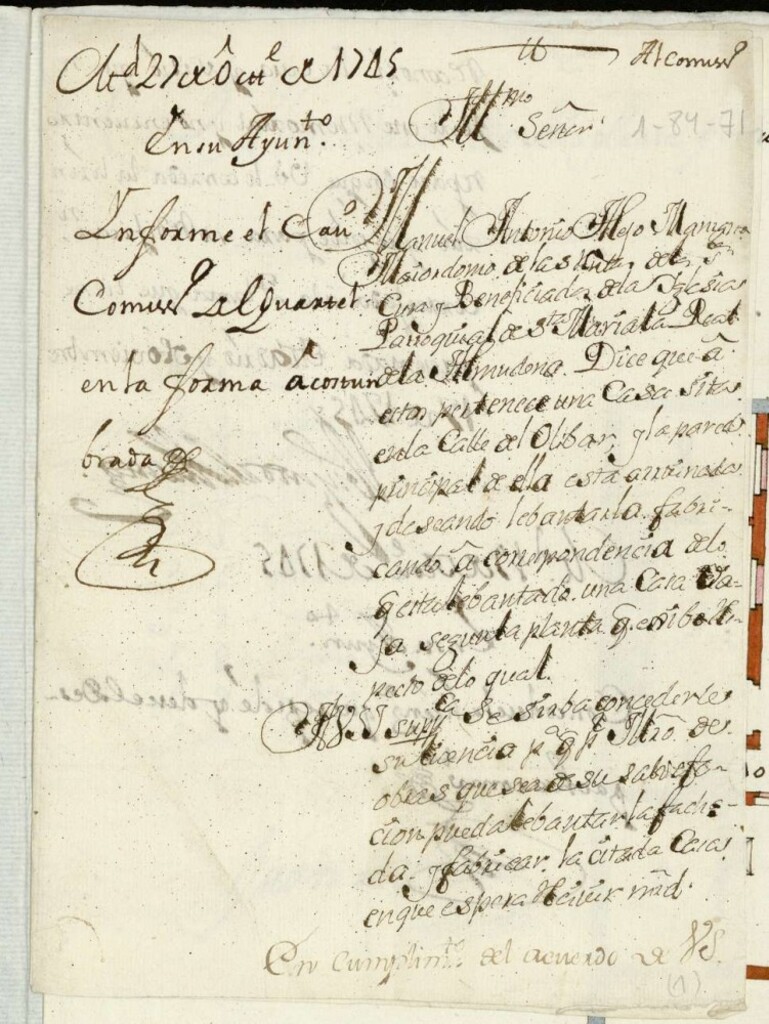 Md 27 de Octre de 1745
Al Comisso
En su Ayunto.
Illmo Señor
1-84-71
Informe el Cavo
Comisso del Quartel
en la forma acostum
brada
Manuel Antonio Alejo
Maiordomo de las de los Sres
Cura y Beneficiados de la Yglesia
Parroquial de Sta Maria la Real
de la Almudena. Dice que â
estos pertenece una Casa sita
en la Calle del Olibar, y la pared
principal de ella està arruinada
y deseando lebantarla fabri-
cando â correspondencia delo
q esta lebantado una Casa
segunda planta
pecto delo qual.
A V.S.I suppca se sirba concederle
su licencia pa q pr Mtro de
obras que sea de su satisfa-
cion pueda lebantar la facha-
da y fabricar la citada Casa
en que espera recivir mrd.
En cumplimto del acuerdo de VS.
(1)